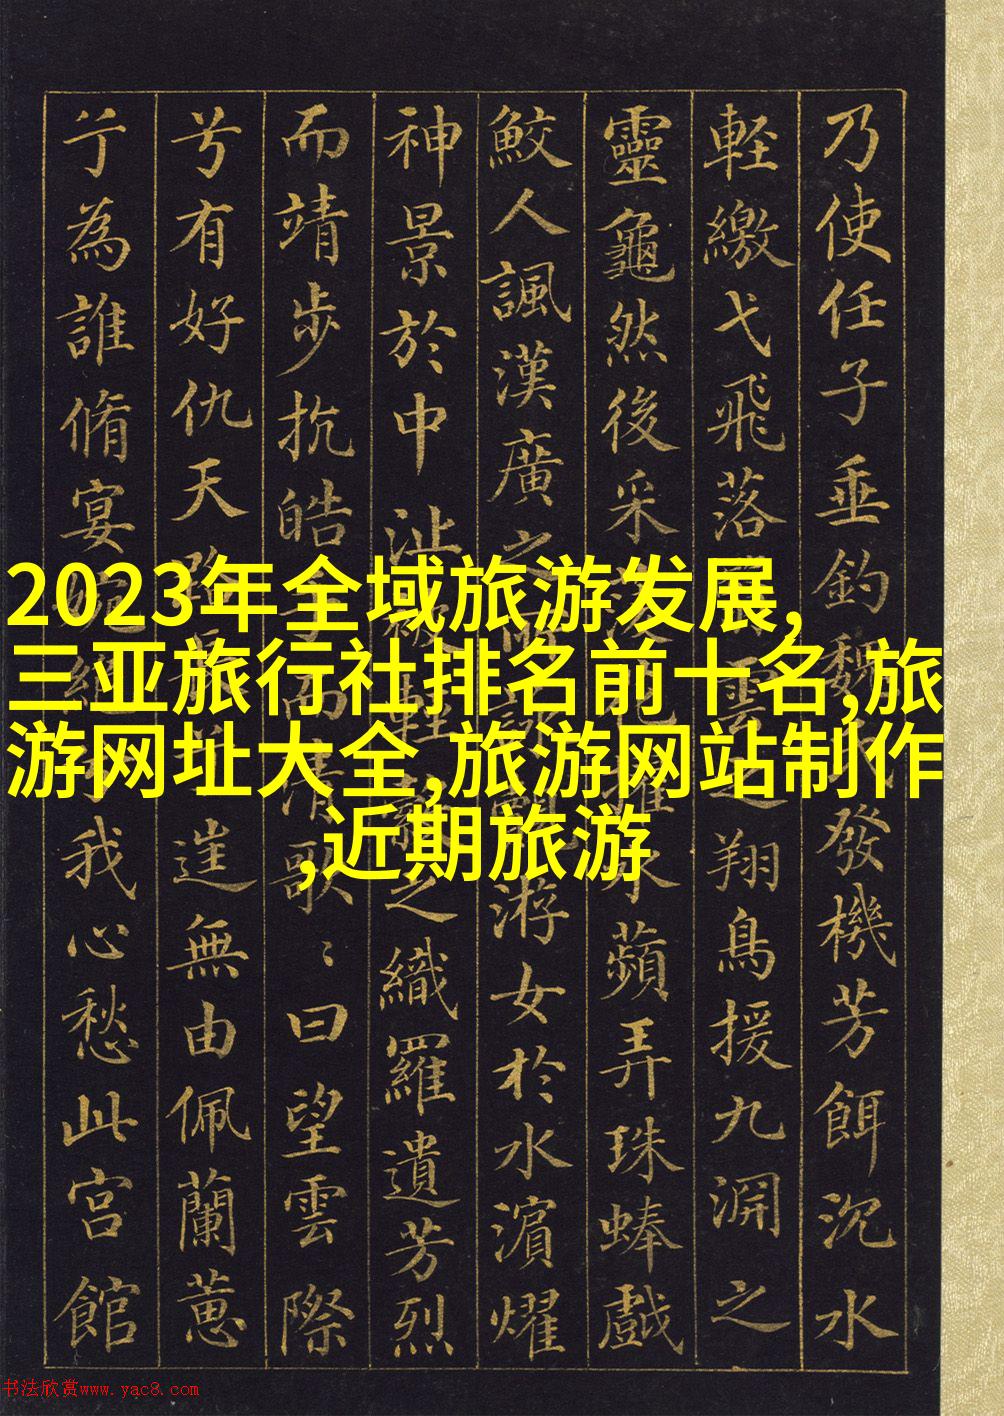 2023年全域旅游发展,
三亚旅行社排名前十名,旅
游网址大全,旅游网站制作
,近期旅游
乃使任子垂釣魏發機芳餌沉水
軽繳弋飛落雲之翔鳥援九淵之
靈龜然後采水蘋弄珠蜯戲
鮫人諷漢廣之游女於水濱燿
神景於中沚之織羅遺芳烈
而靖步抗皓手而清歌〻曰望雲際
兮有好仇天路無由佩蘭蕙
兮為誰脩宴婉絕我心愁此宮館
书法欣赏www.yac8.com